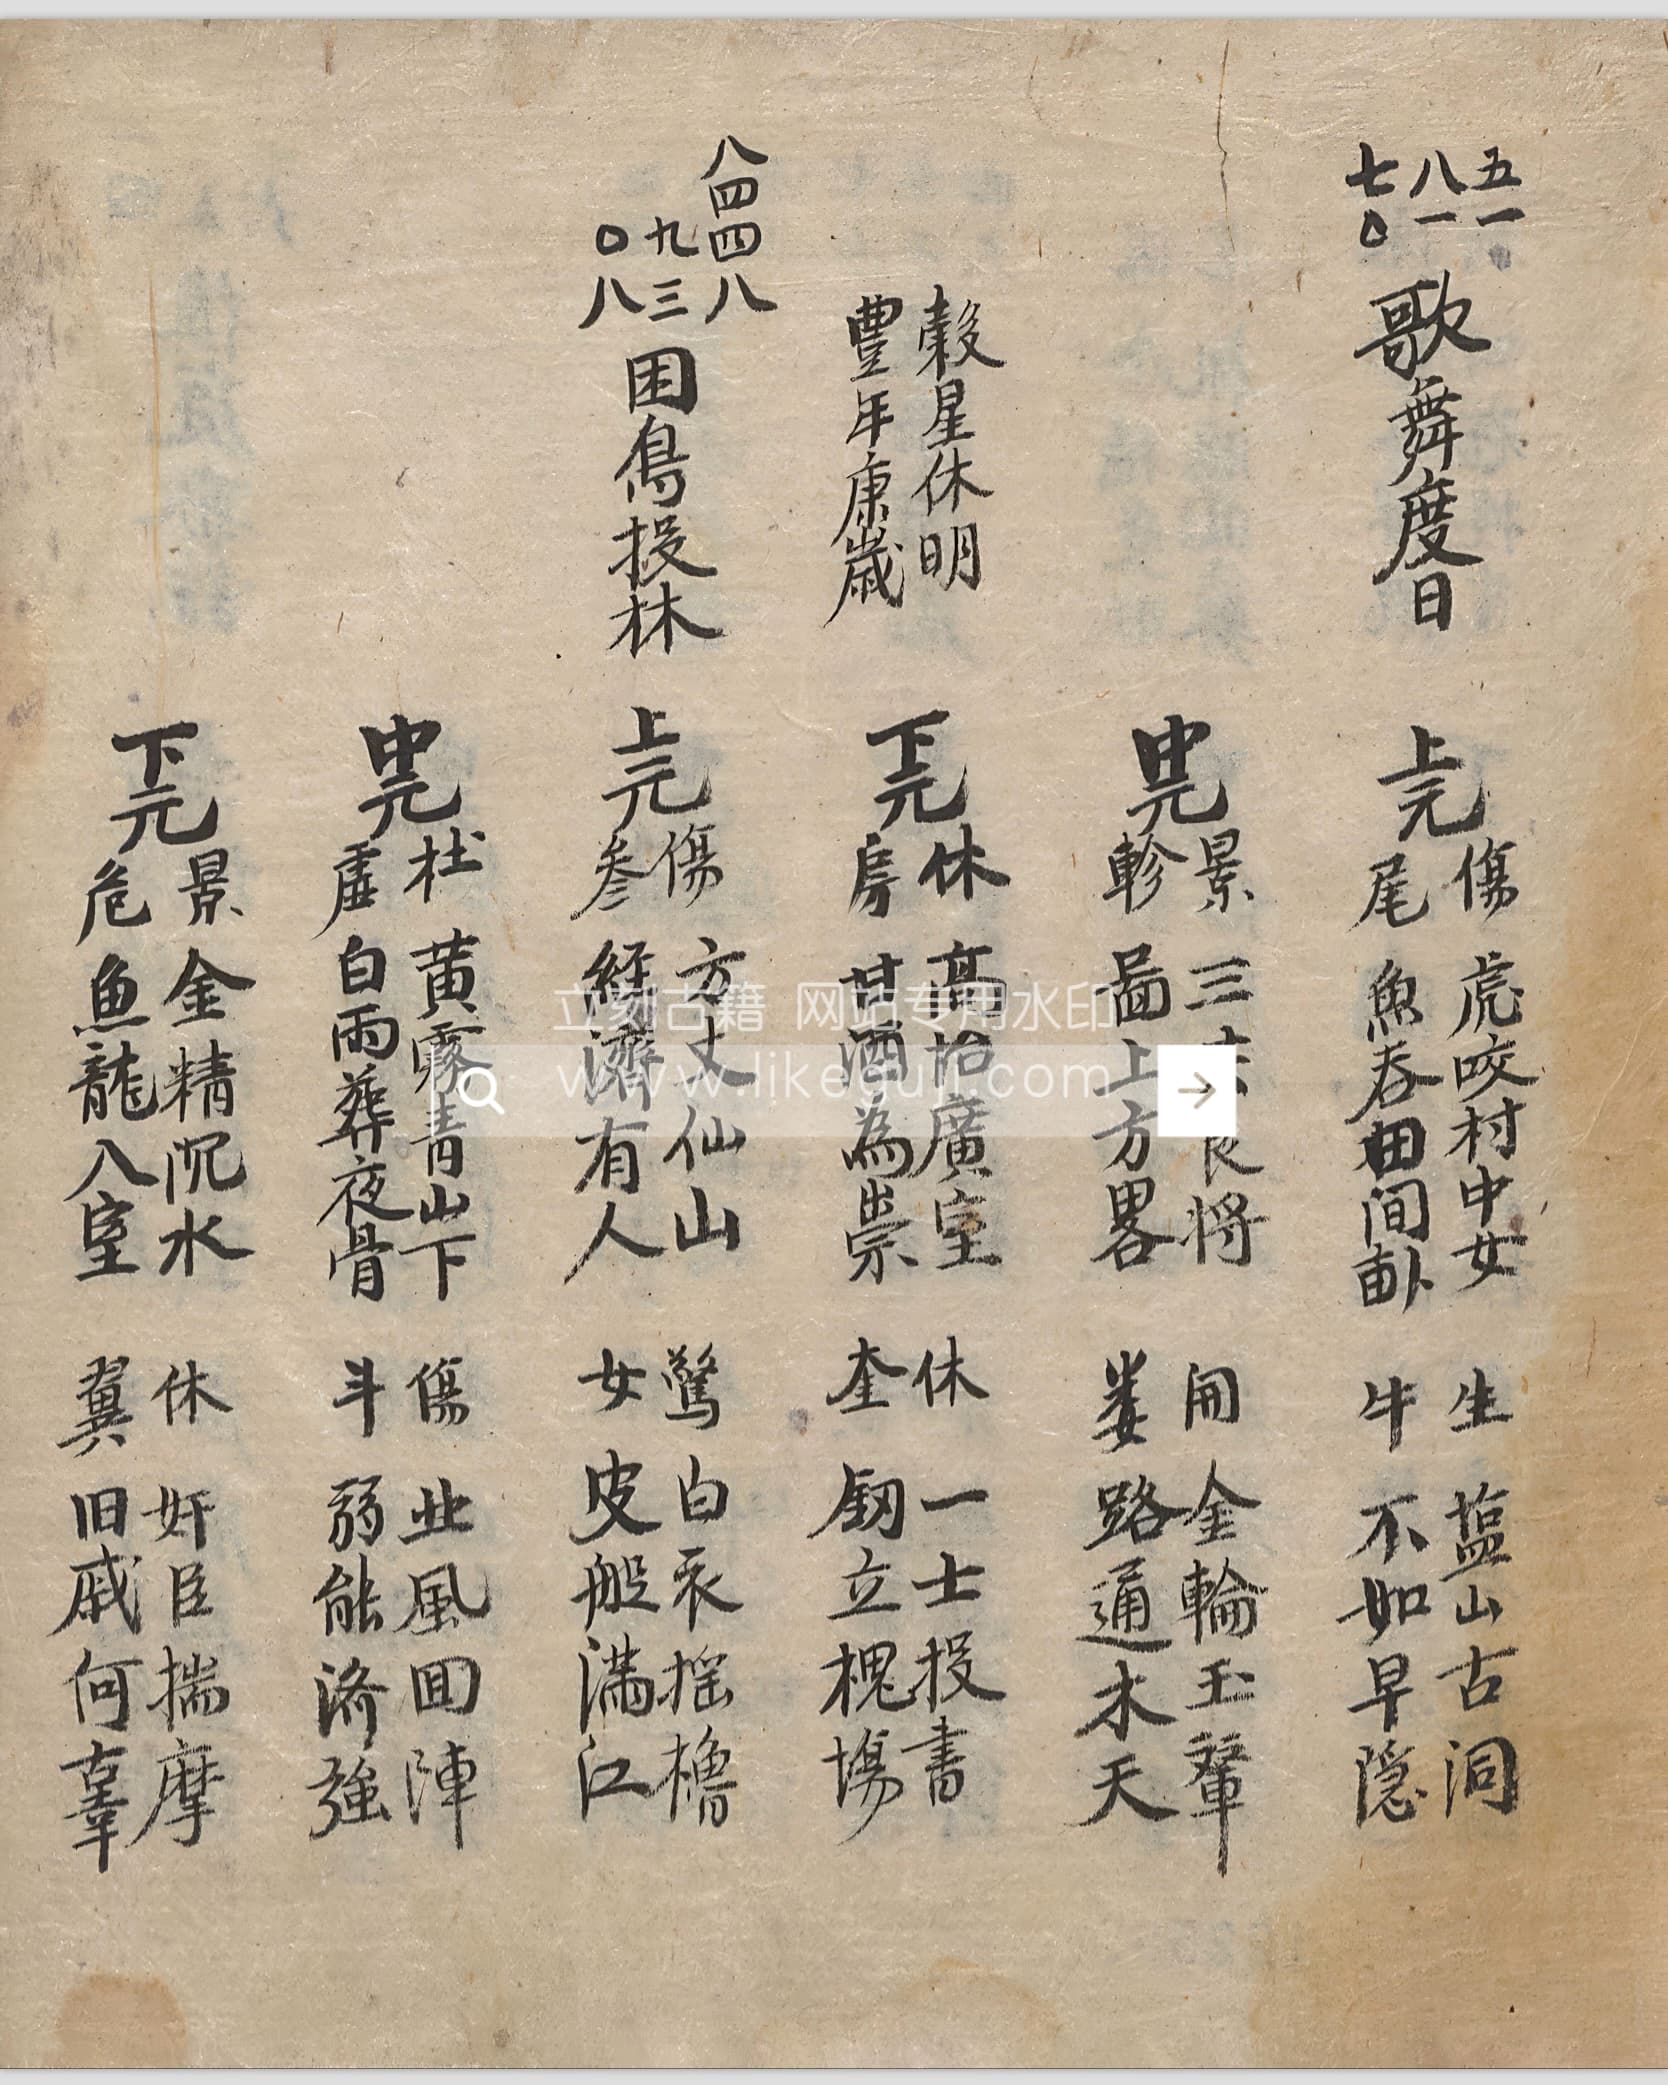 五一
八一
七〇
歌舞度日
上元
傷 虎咬村中女 生 盐山古洞
尾 魚吞田间卧 牛 不如早隐
中元
景 三 良将 開 金輪玉輦
軫 啚上方畧 娄 路通水天
穀星休明
豊年康歳
下元
休 髙抬廣室 休 一士投書
房 甘酒為祟 奎 釼立槐場
八四四八
九三
〇八
困鳥投林
上元
傷 方丈仙山 驚 白衣揺櫓
参 経濟有人 女 皮船満江
中元
杜 黄霧青山下 傷 北風囬陣
虚 白雨葬夜骨 斗 弱能济強
下元
景 金精沉水 休 奸臣揣摩
危 魚龍入室 翼 旧戚何辜
立刻古籍 网站专用水印
www.likeguji.com